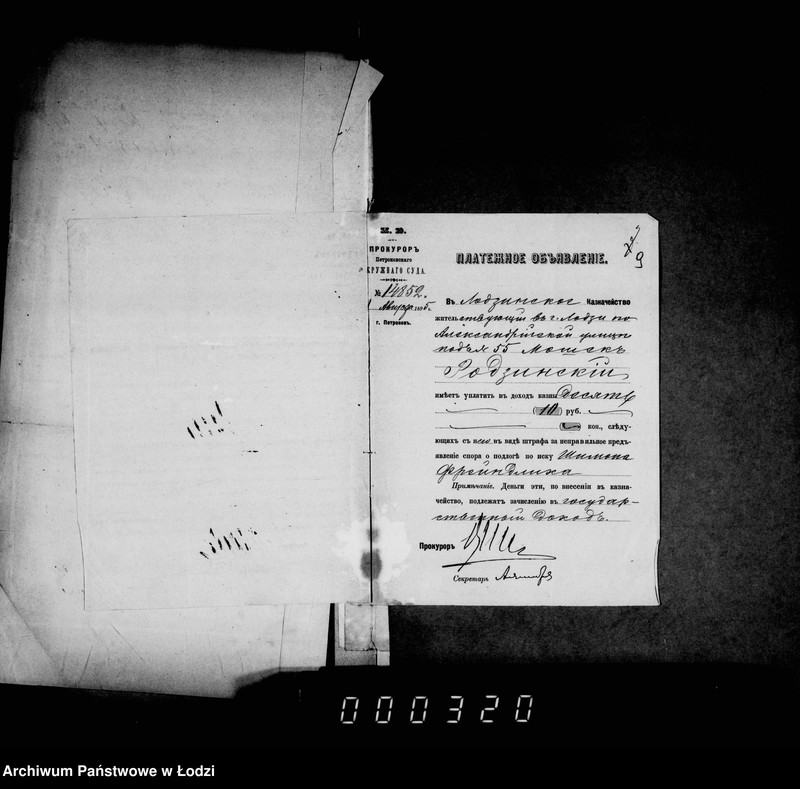 М. Ю.
ПРОКУРОРЪ
Петроковскаго
ОКРУЖНАГО СУДА.
№ 14852.
1895.
г. Петроковъ.
9
ПЛАТЕЖНОЕ ОБЪЯВЛЕНІЕ.
Въ Лодзинское Казначейство
жительствующій въ г. Лодзи по
Александрійской улицѣ
подъ № 55 Мошекъ
Родзинскій
имѣетъ уплатить въ доходъ казны Десять
(10) руб.
(—) коп., слѣду-
ющихъ съ него въ видѣ штрафа за неправильное предъ-
явленіе спора о подлогѣ по иску Шимона
Фрейндлиха
Примѣчаніе. Деньги эти, по внесеніи въ казна-
чейство, подлежатъ зачисленію въ государ-
ственный доходъ.
Прокуроръ
Секретарь
000320
Archiwum Państwowe w Łodzi